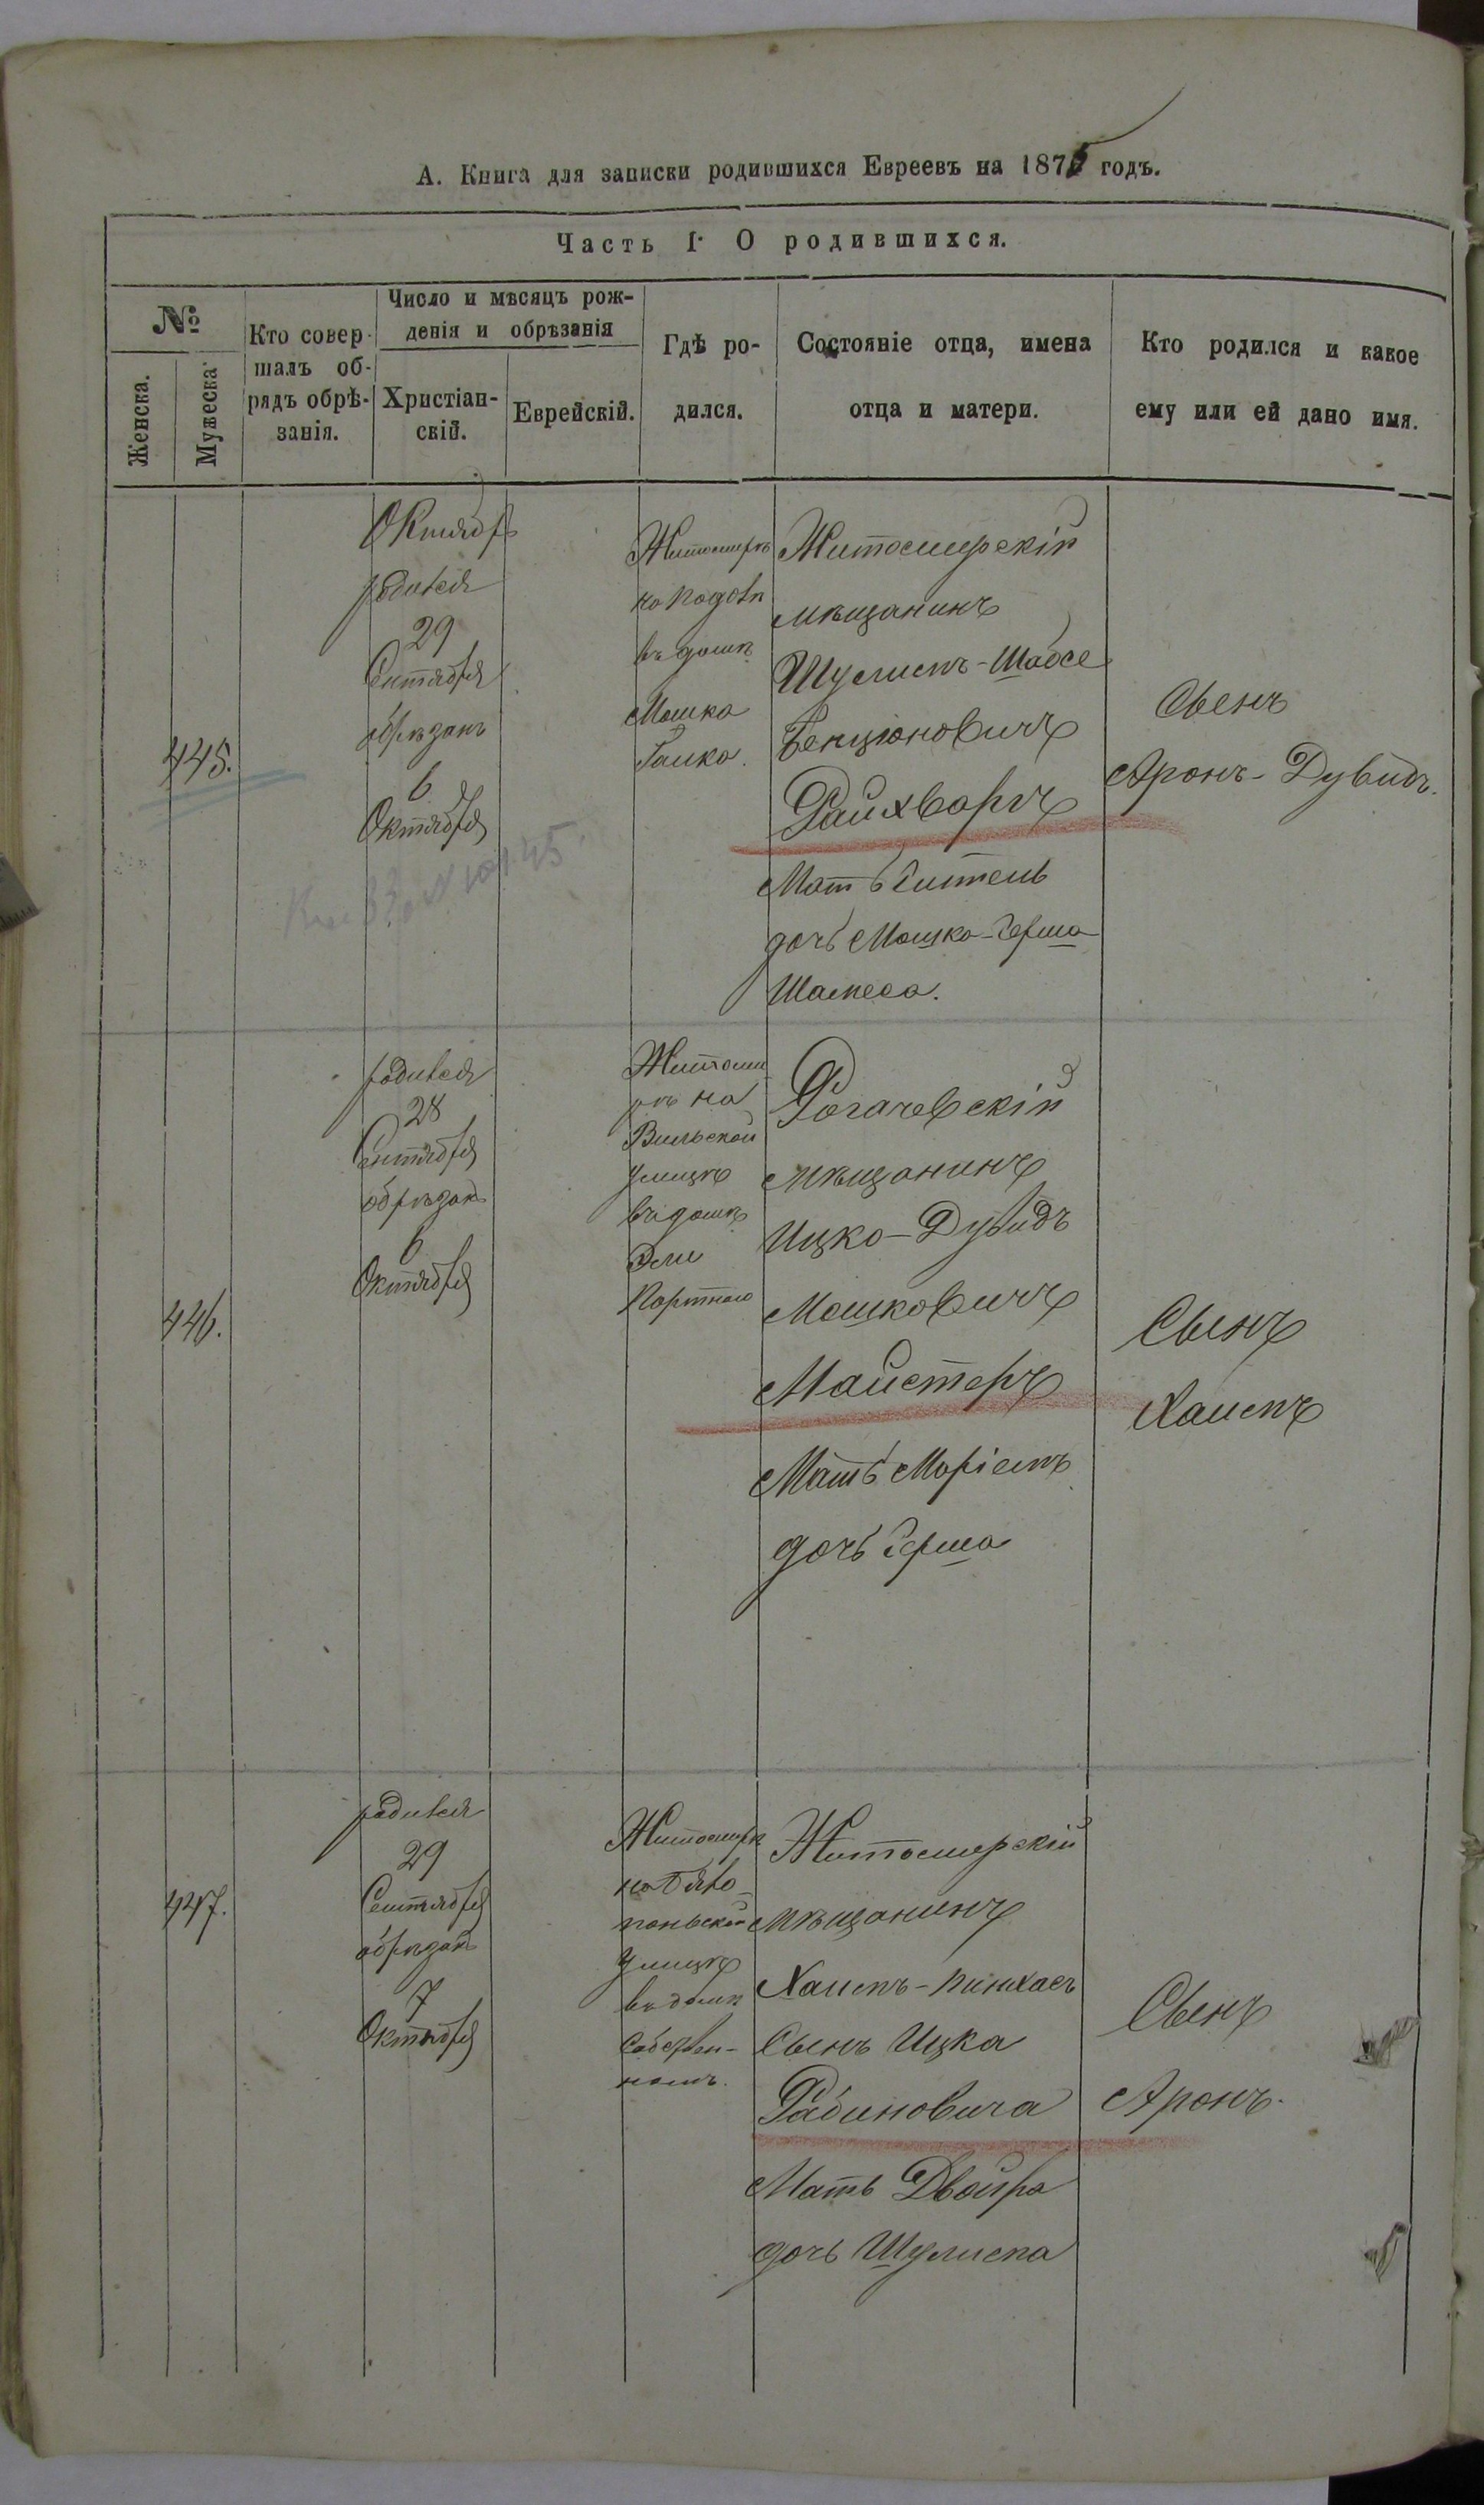 А. Книга для записки родившихся Евреевъ на 1875 годъ.
Часть I. О родившихся.
№
Женска.
Мужеска.
Кто совер-
шалъ об-
рядъ обрѣ-
занія.
Число и мѣсяцъ рож-
денія и обрѣзанія
Христіан-
скій.
Еврейскій.
Гдѣ ро-
дился.
Состояніе отца, имена
отца и матери.
Кто родился и какое
ему или ей дано имя.
445.
Октябрь
родился
29
Сентября
обрѣзанъ
6
Октября
Житомирѣ
на Подолѣ
въ домѣ
Мошка
Житомирскій
мѣщанинъ
Шулимъ-Шабсе
Бенціоновичъ
Райхваргъ
Мать Гитель
дочь Мошко-Герша
Шамеса.
Сынъ
Аронъ-Дувидъ.
446.
родился
28
Сентября
обрѣзанъ
6
Октября
Житоми
рѣ на
Вильской
улицѣ
въ домѣ
Эли
Портного
Рогачевскій
мѣщанинъ
Ицко-Дувидъ
Мошковичъ
Майстеръ
Мать Маріемъ
дочь Герша
Сынъ
Хаимъ
447.
родился
29
Сентября
обрѣзанъ
7
Октября
Житомирѣ
улицѣ
въ домѣ
Житомирскій
мѣщанинъ
Хаимъ-Пинхасъ
Сынъ Ицка
Рабиновича
Мать Двойра
дочь Шулима
Сынъ
Аронъ.